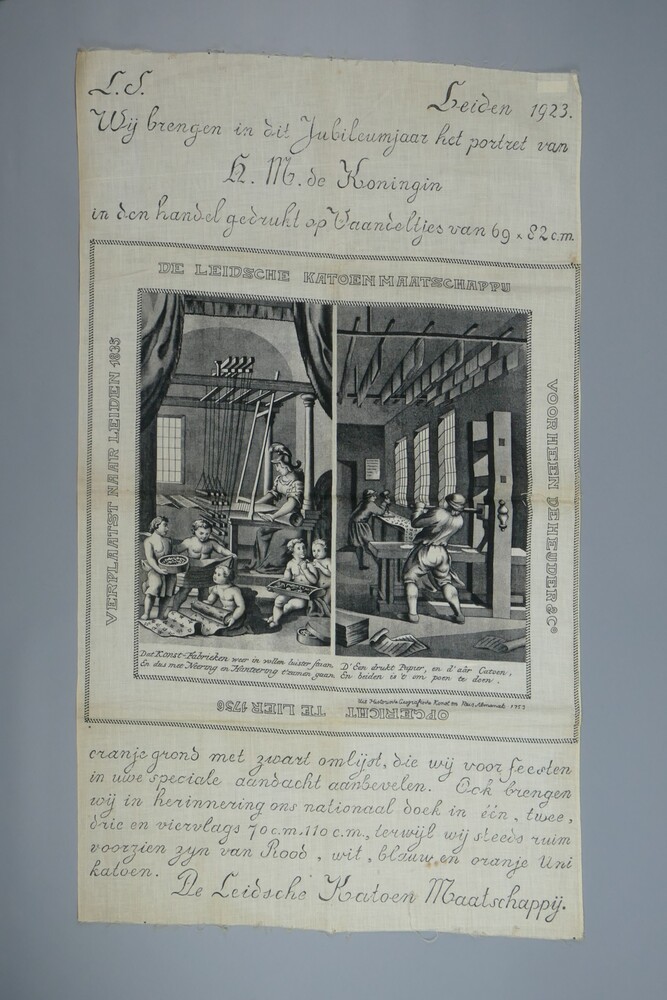 L.S.
Leiden 1923.
Wij brengen in dit Jubileumjaar het portret van
H. M. de Koningin
in den handel gedrukt op Vaandeltjes van 69 x 82 c.m.
DE LEIDSCHE KATOENMAATSCHAPPIJ
VERPLAATST NAAR LEIDEN 1835
VOORHEEN DE HEIJDER & Co
Dat Konst-Fabrieken weer in vollen luister staan
En dus met Neering en Hanteering t'zamen gaan
D'Een drukt Papier, en d'aâr Catoen,
En beiden is't om poen te doen.
OPGERICHT TE LIER 1756
oranje grond met zwart omlijst, die wij voor feesten
in uwe speciale aandacht aanbevelen. Ook brengen
wij in herinnering ons nationaal doek in één, twee,
drie en viervlags 70 c.m. 110 c.m., terwijl wij steeds ruim
voorzien zyn van Rood, wit, blauw en oranje Uni
katoen.
De Leidsche Katoen Maatschappij.